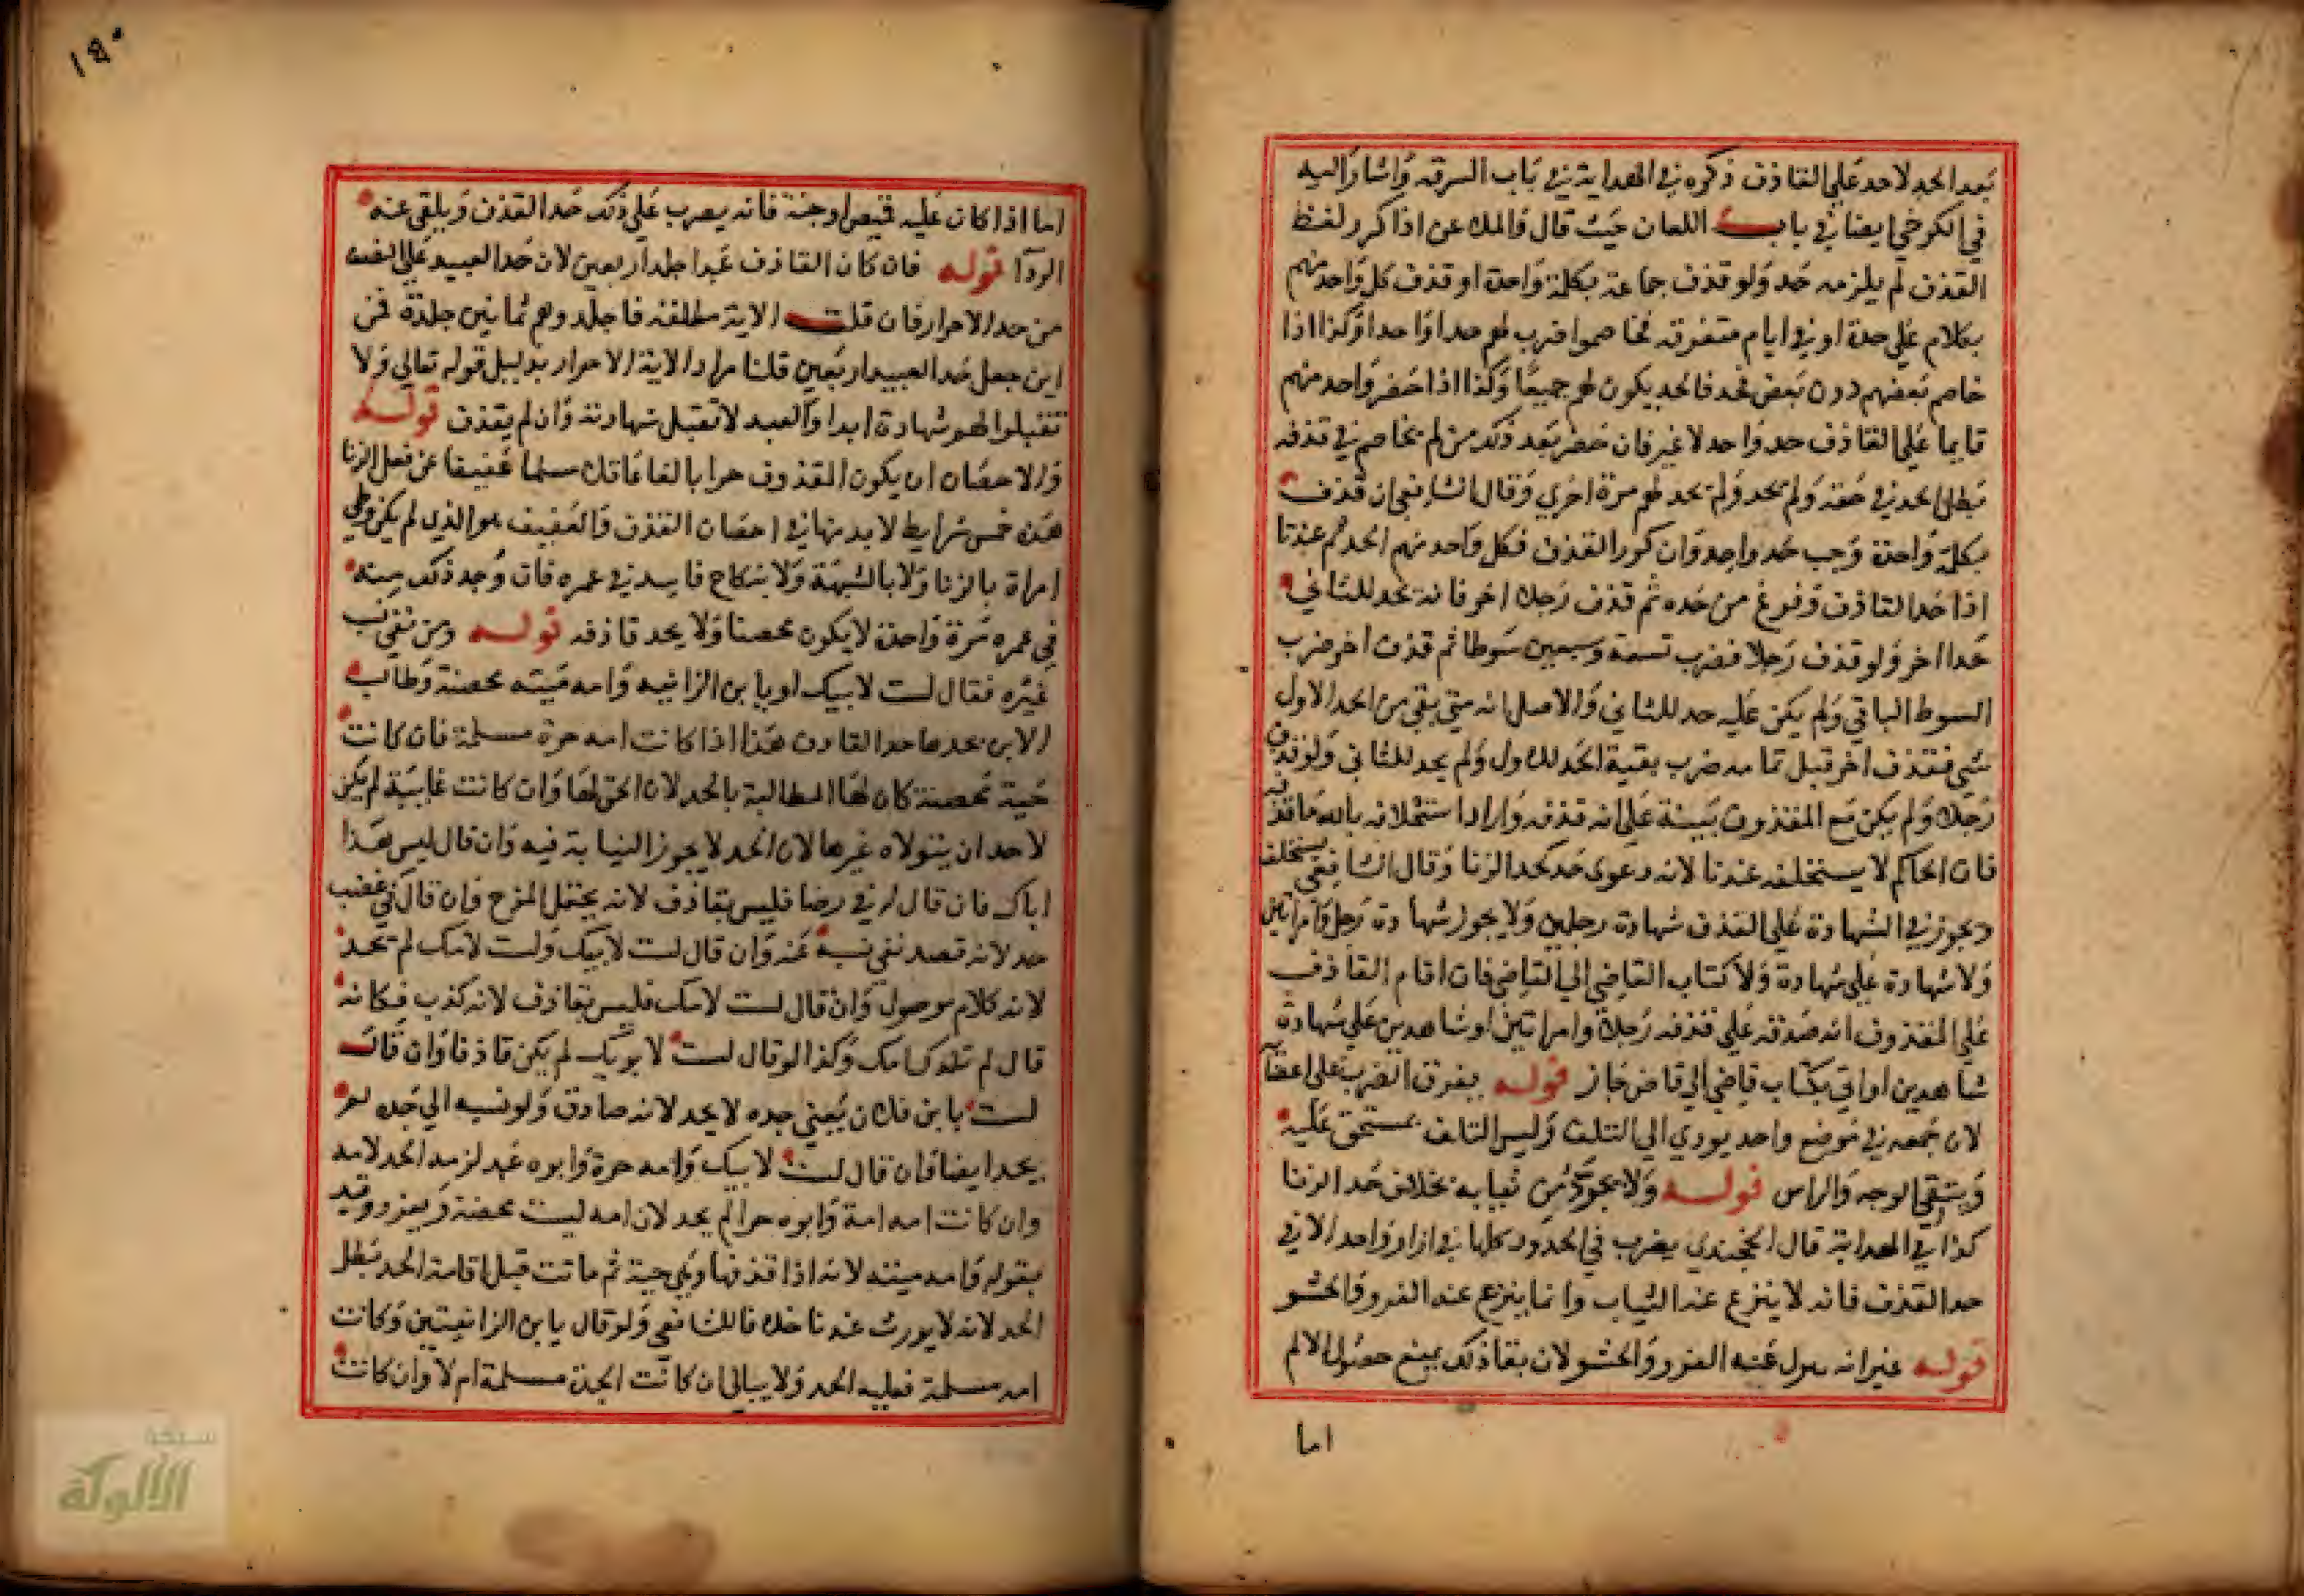 بعد الحد لاحد علي القاذف ذكره في الهداية في باب السرقة واشار اليه
في الكرخي ايضا في باب اللعان حيث قال فالملاعن اذا كرر لفظ
القذف لم يلزمه حد ولو قذف جماعة بكلمة واحدة او قذف كل واحد منهم
بكلام علي حدة او في ايام متفرقة فخاصموا ضرب لهم حدا واحدا وكذا اذا
خاصم بعضهم دون بعض فحد فالحد يكون لهم جميعا وكذا اذا حضر واحد منهم
فانما علي القاذف حد واحد لا غير فان حضر بعد ذلك من لم يخاصم في قذفه
بطل الحد في حقه ولم يحد ولم يحد لهم مرة اخري وقال الشافعي ان قذف
بكلمة واحدة وجب حد واحد وان كرر القذف فكل واحد منهم الحد ثم عندنا
اذا حد القاذف وفرغ من حده ثم قذف رجلا اخر فانه يحد للثاني
حدا اخر ولو قذف رجلا فضرب تسعة وسبعين سوطا ثم قذف اخر ضرب
السوط الباقي ولم يكن عليه حد للثاني والاصل انه متي بقي من الحد الاول
شي فقذف اخر قبل تمامه ضرب بقية الحد للاول ولم يحد للثاني ولو قذف
رجلا ولم يكن مع المقذوف بينة علي انه قذفه واراد استحلافه بالله ما قذفه
فان الحاكم لا يستحلفه عندنا لانه دعوى حد كحد الزنا وقال الشافعي يستحلف
ويجوز في الشهادة علي القذف شهادة رجلين ولا يجوز شهادة رجل وامراتين
ولا شهادة علي شهادة ولا كتاب القاضي الي القاضي فان اقام القاذف
علي المقذوف انه صدقه علي قذفه رجلا وامراتين او شاهدين علي شهادة
شاهدين او اتي بكتاب قاضي الي قاض جاز قوله يفرق الضرب على اعضائه
لان جمعه في موضع واحد يودي الي التلف وليس التلف مستحق عليه
ويتقي الوجه والراس قوله ولا يجرد من ثيابه بخلاف حد الزنا
كذا في الهداية قال الخجندي يضرب في الحدود كلها في ازار واحد الا في
حد القذف فانه لا ينزع عنه الثياب وانما ينزع عنه الفرو والحشو
قوله غير انه ينزع عنه الفرو والحشو لان بقا ذلك يمنع حصول الالم
اما
١٤٠
اما اذا كان عليه قميص او جبة فانه يضرب علي ذلك حد القذف ويلقي عنه
الردا قوله فان كان القاذف عبدا جلد اربعين لان حد العبيد علي النصف
من حد الاحرار فان قلت الاية مطلقة فاجلدوهم ثمانين جلدة فمن
اين جعل حد العبيد اربعين قلنا مراد الاية الاحرار بدليل قوله تعالي ولا
تقبلوا لهم شهادة ابدا والعبد لا تقبل شهادته وان لم يقذف قوله
والاحصان ان يكون المقذوف حرا بالغا عاقلا مسلما عفيفا عن فعل الزنا
هذه خمس شرايط لا بد منها في احصان القذف والعفيف هو الذي لم يكن وطي
امراة بالزنا ولا بالشبهة ولا بنكاح فاسد في عمره فان وجد ذلك منه
في عمره مرة واحدة لا يكون محصنا ولا يحد قاذفه قوله ومن نفي نسب
غيره فقال لست لابيك او يا بن الزانيه وامه ميتة محصنة وطالب
الابن بحدها حد القاذف هذا اذا كانت امه حرة مسلمة فان كانت
حية محصنة كان لها المطالبة بالحد لان الحق لها وان كانت غايبة لم يكن
لاحد ان يتولاه غيرها لان الحد لا يجوز النيابة فيه وان قال ليس هذا
اباك فان قال له في رضا فليس بقاذف لانه يحتمل المزح وان قال في غضب
حد لانه قصد نفي نسبه عنه وان قال لست لابيك ولست لامك لم يحد
لانه كلام موصول وان قال لست لامك فليس بقاذف لانه كذب فكانه
قال لم تلدك امك وكذا لو قال لست لابويك لم يكن قاذفا وان قال
لست يا بن فلان يعني جده لا يحد لانه صادق ولو نسبه الي جده لم
يحد ايضا فان قال لست لابيك وامه حرة وابوه عبد لزمه الحد لامه
وان كانت امه امة وابوه حرا لم يحد لان امه ليست محصنة ويعزر وقيد
بقوله وامه ميتة لانه اذا قذفها وهي حية ثم ماتت قبل اقامة الحد بطل
الحد لانه لا يورث عندنا خلافا للشافعي ولو قال يا بن الزانيتين وكانت
امه مسلمة فعليه الحد ولا يبالي ان كانت الجدة مسلمة ام لا وان كانت
شبكة
الألوكة